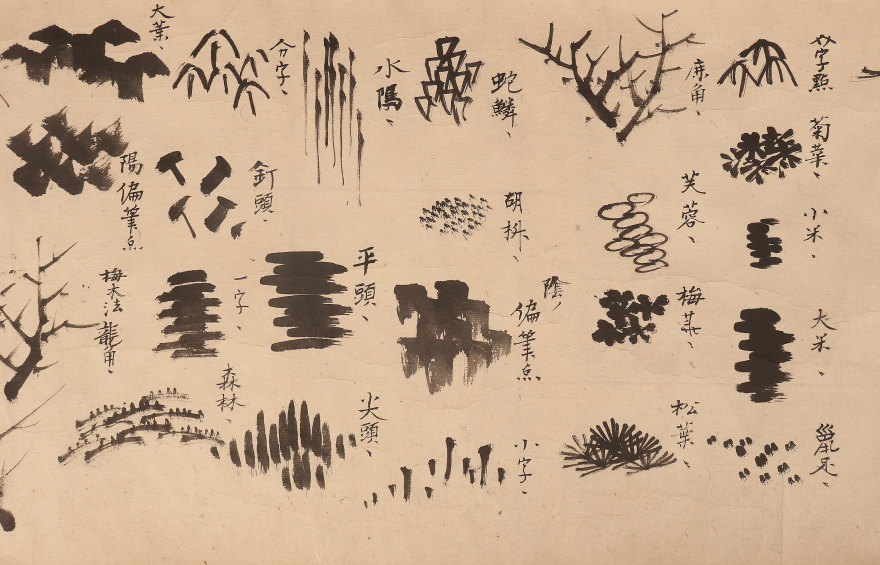 個字點
菊葉、
小米、
大米、
鼠足、
鹿角、
芙蓉、
梅花、
松葉、
蛇鱗、
胡椒、
陰ノ
偏筆点
小字、
水隝、
平頭、
尖頭、
分字、
釘頭、
一字、
森林、
大葉、
陽偏筆点
梅木法
龍角、